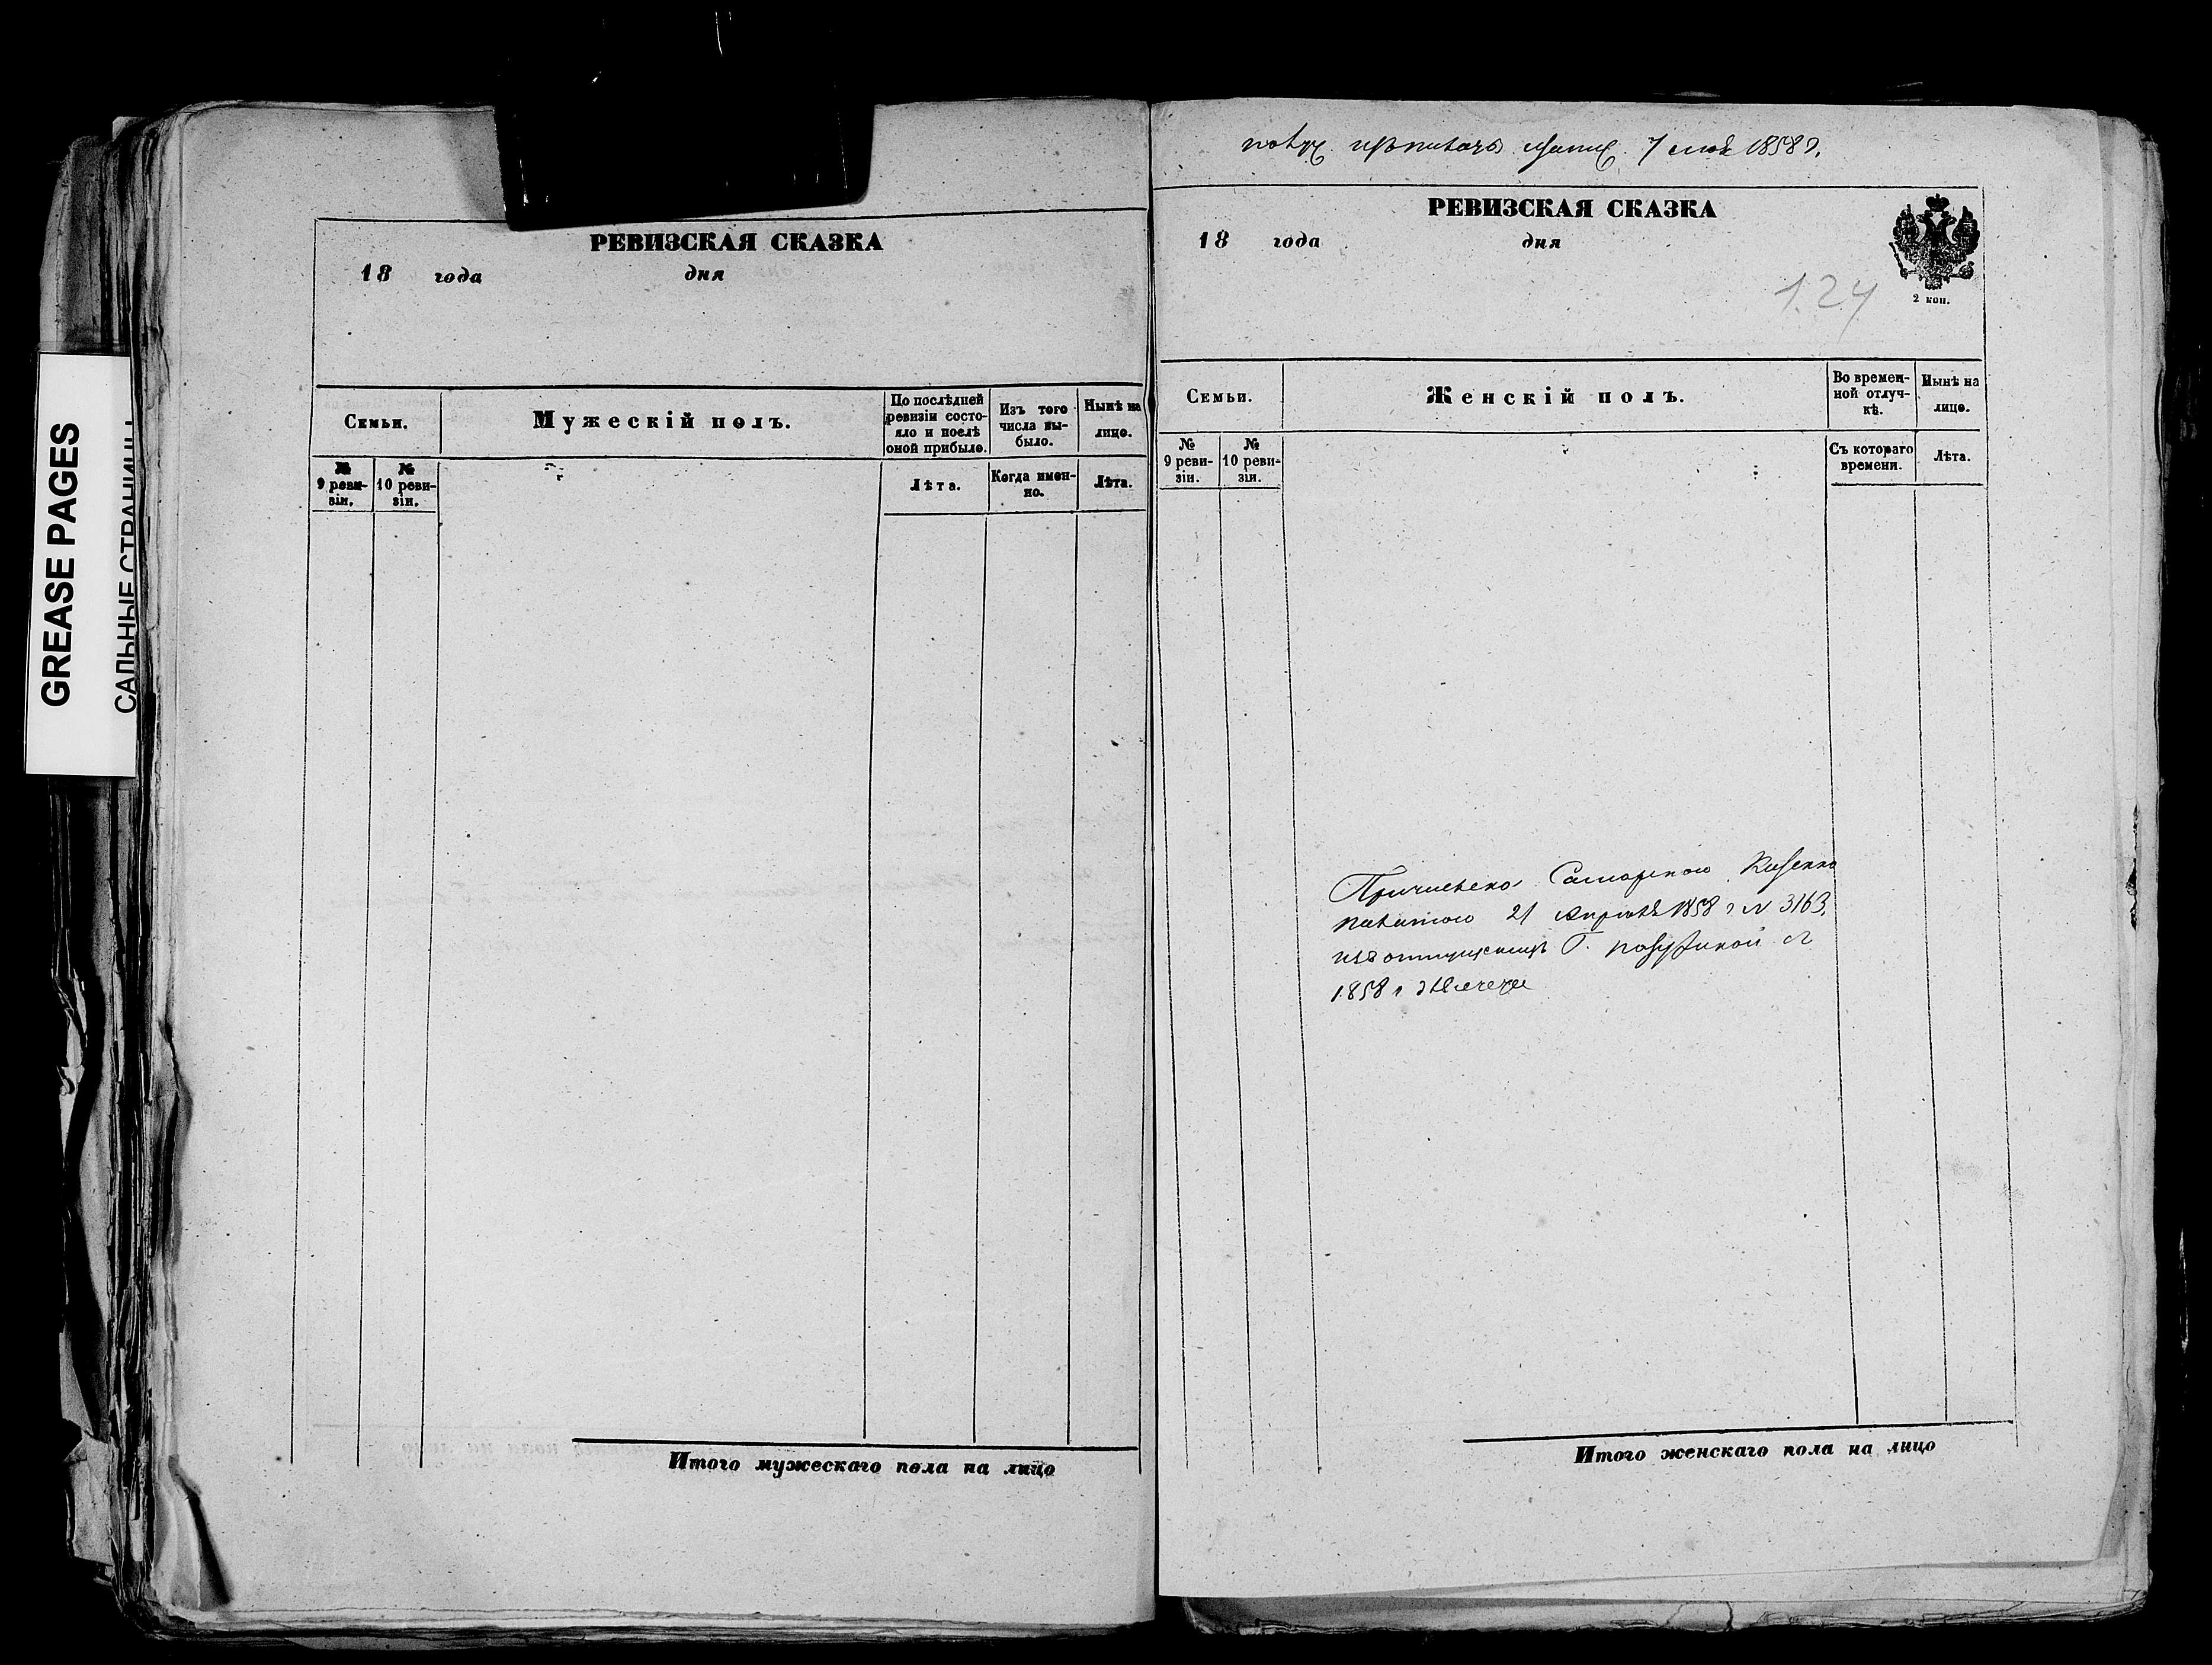 GREASE PAGES
САЛЬНЫЕ СТРАНИЦЫ
РЕВИЗСКАЯ СКАЗКА
18 года дня
Семьи.
Мужескій полъ.
По послѣдней
ревизіи состо-
яло и послѣ
оной прибыло.
Изъ того
числа вы-
было.
Нынѣ на
лицо.
№
9 реви-
зіи.
№
10 реви-
зіи.
Лѣта.
Когда имен-
но.
Лѣта.
Итого мужескаго пола на лицо
7 мая 1858 г.
РЕВИЗСКАЯ СКАЗКА
18 года дня
124
2 коп.
Семьи.
Женскій полъ.
Во времен-
ной отлуч-
кѣ.
Нынѣ на
лицо.
№
9 реви-
зіи.
№
10 реви-
зіи.
Съ котораго
времени.
Лѣта.
Причислена Самарскою Казенною
палатою 21 апрѣля 1858 г № 3163,
изъ отпущенныхъ Г. съ
1858 г
Итого женскаго пола на лицо